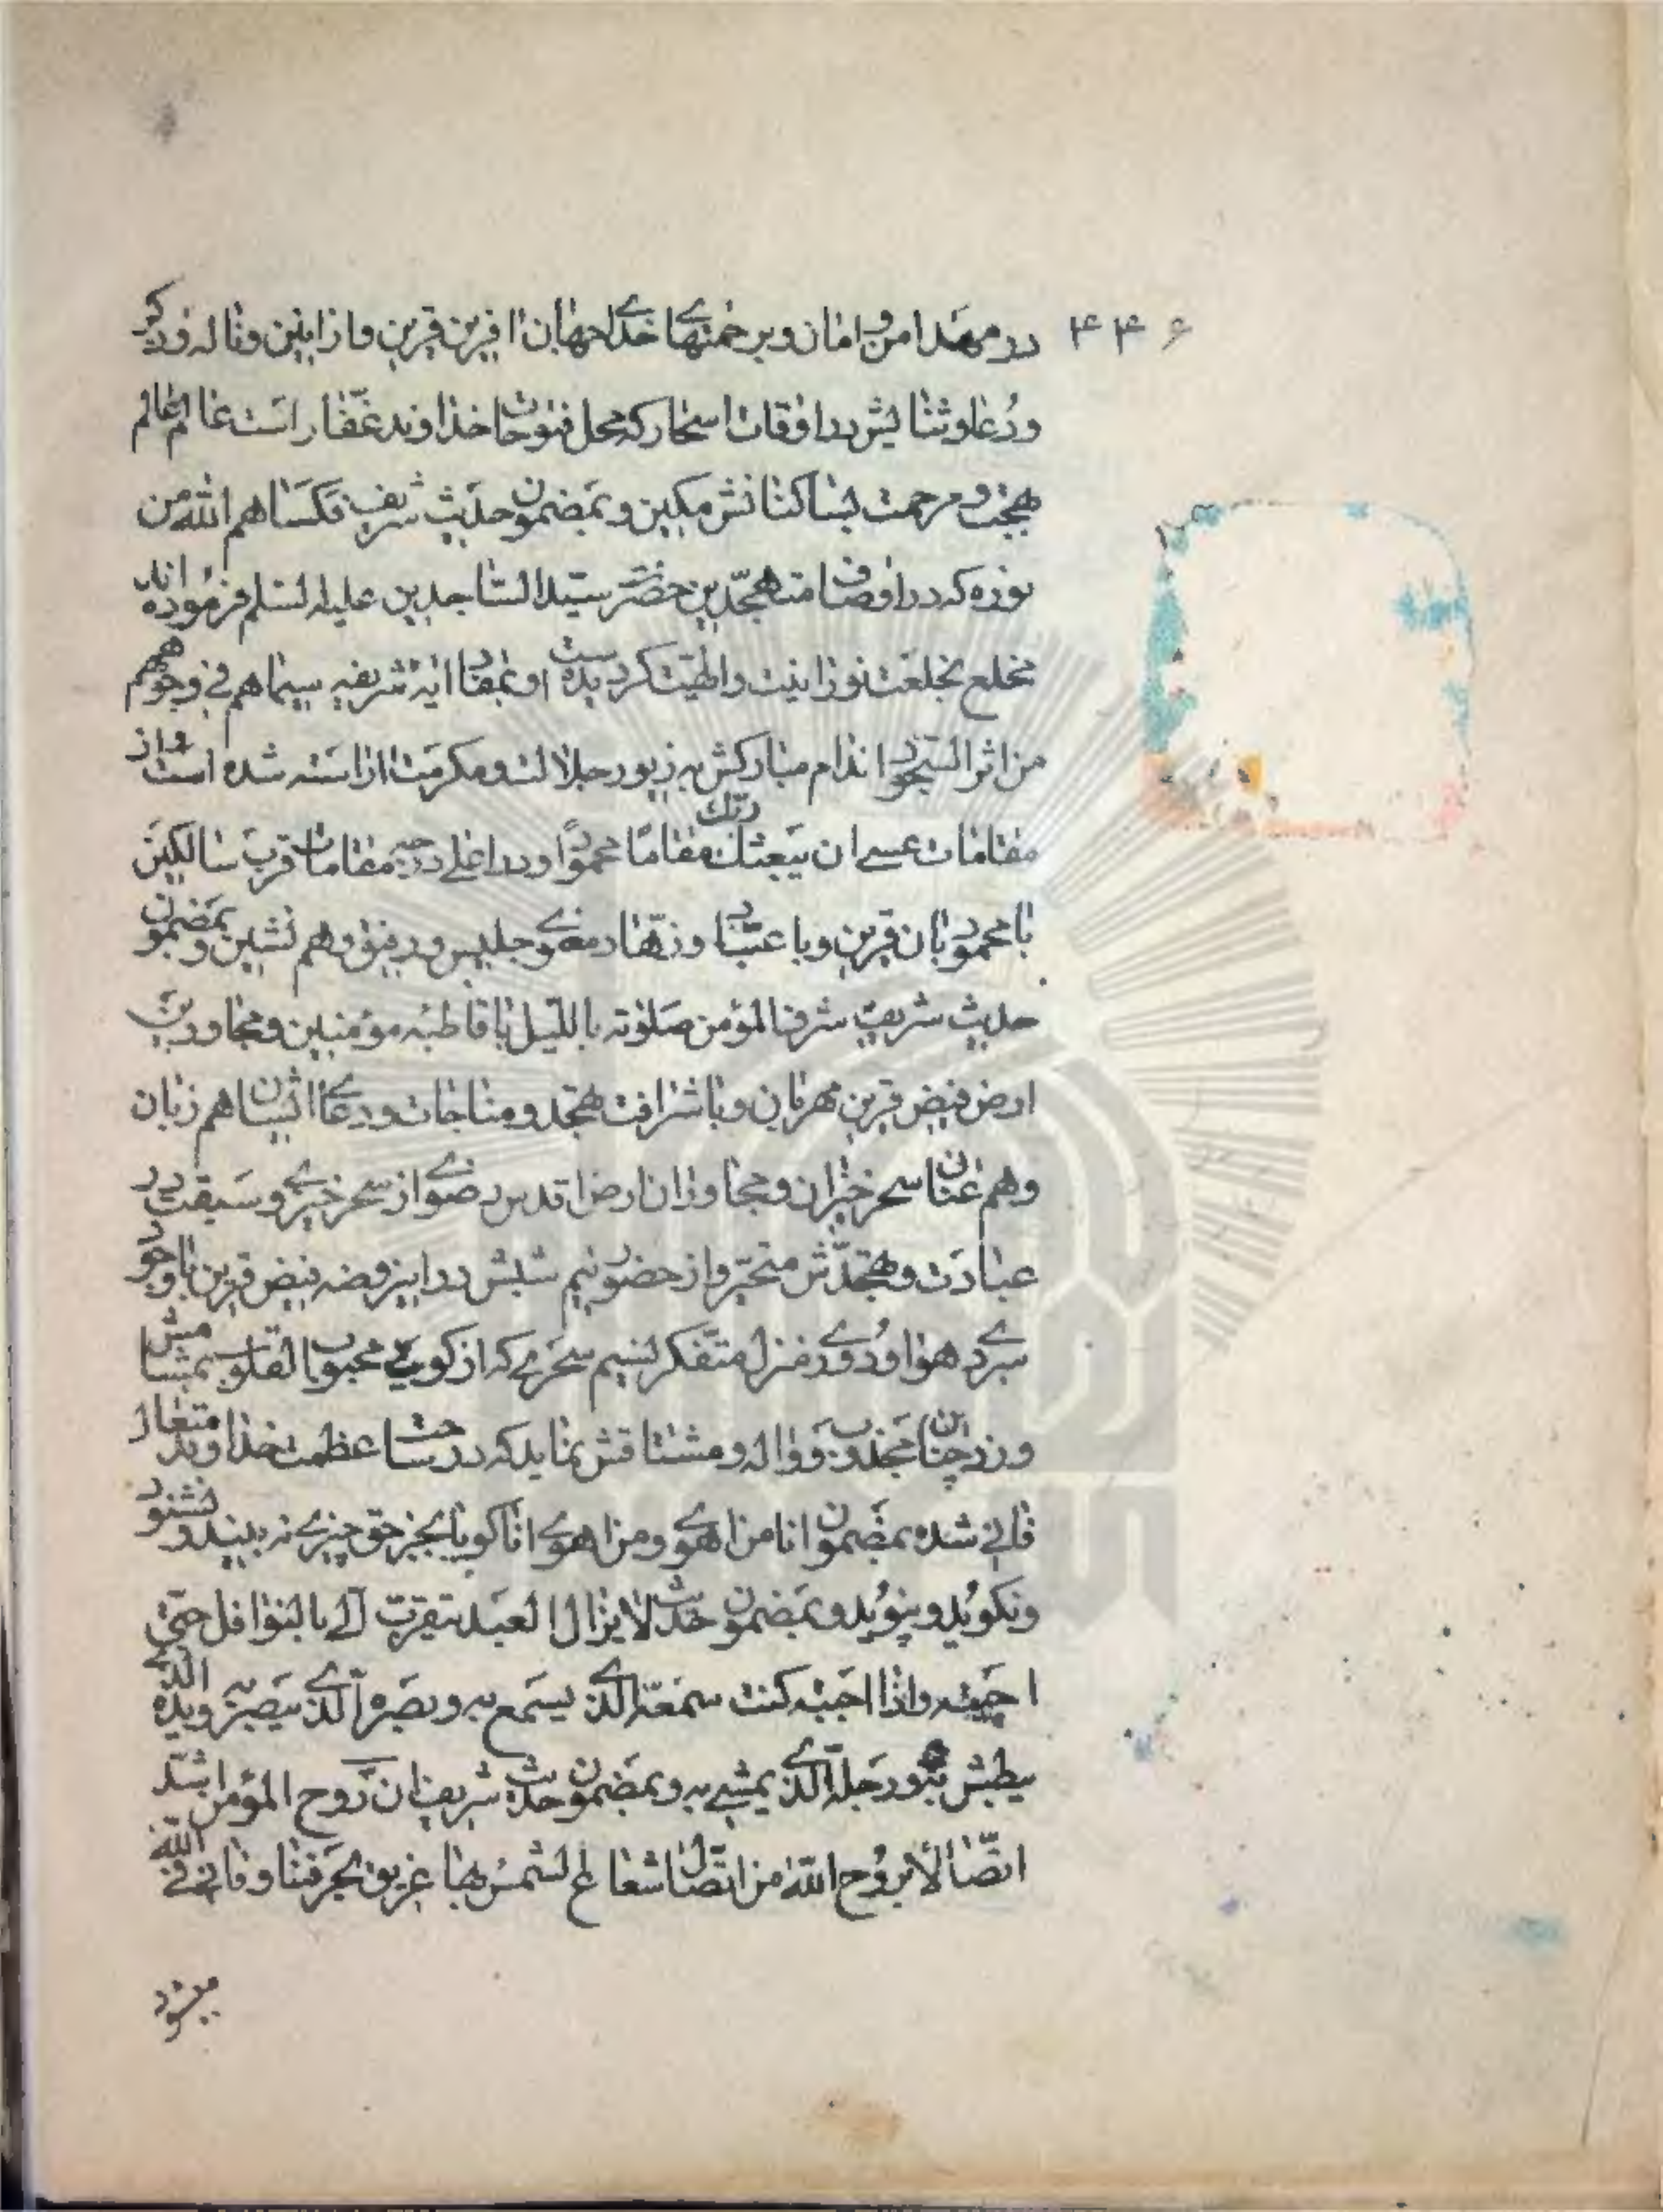 ۴۴۶
در مهد امن و امان و برحمتهای خدای جهان افرین قرین و از انین و ناله و ذکر
و دعا و ثنایش در اوقات اسحار که محل فتوحات خداوند غفار است عالم عالم
بهجت و مرحمت بساکنانش مکین و بمضمون حدیث شریف فکساهم الله من
نوره که در اوصاف متهجدین حضرت سید الساجدین علیه السلم فرموده اند
مخلع بخلعت نورانیت و اطیبت کردیده است و بمفاد ایه شریفه سیماهم فی وجوههم
من اثر السجود اندام مبارکش به زیور جلالت و مکرمت اراسته شده است و از
مقامات عسی ان یبعثک ربک مقاما محمودا و در اعلی درجه مقامات قرب سالکین
با محمودیان قرین و با عباد و زهاد معنوی جلیس و رفیق و هم نشین و بمضمون
حدیث شریف شرف المؤمن صلوته باللیل با قاطبه مؤمنین و مجاورین
ارض فیض قرین مهربان و با شرافت تهجد و مناجات و دعای ایشان هم زبان
و هم عنان سحر خیزان و مجاوران ارض اقدس رضوی از سحر خیزی و سبقت در
عبادت و تهجدش متحیر و از حضور نیم شبش در این روضه فیض قرین با وجود
سردی هوا و دوری منزل متفکر نسیم سحری که از کوی محبوب القلوب بمشامش
وزد چنان مجذوب و واله و مشتاقش نماید که در ساحت عظمت خداوند متعال
فانی شده بمضمون انا من اهوی و من اهوی انا کویا بجز حق چیزی نه بیند و نشنود
و نکوید و نپوید و بمضمون حدیث لا یزال العبد یتقرب الی بالنوافل حتی
احببته و اذا احببته کنت سمعه الذی یسمع به و بصره الذی یبصر به و یده الذی
یبطش بها و رجله الذی یمشی به و بمضمون حدیث شریف ان روح المؤمن اشد
اتصالا بروح الله من اتصال شعاع الشمس بها غریق بحر فنا و فانی فی الله
میشود